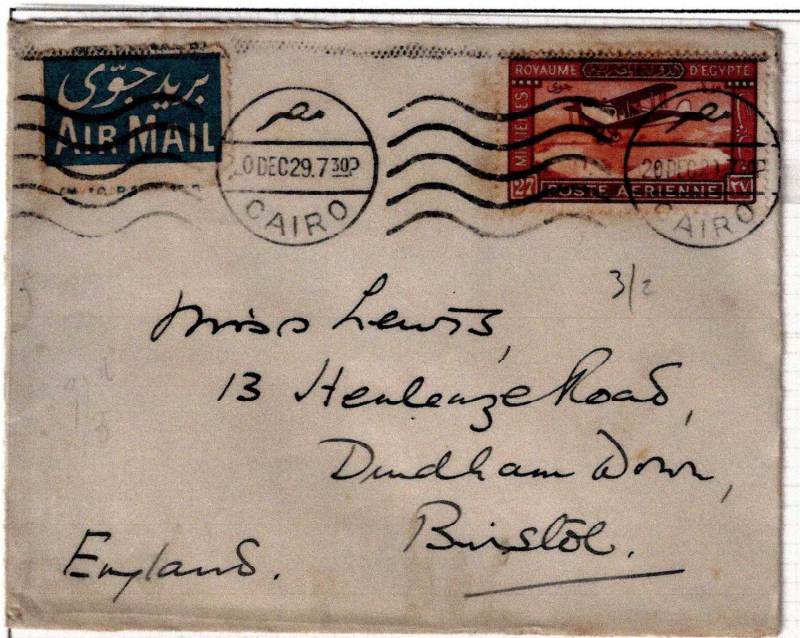 بريد جوّي
AIR MAIL
مصر
20 DEC 29. 7 30P
CAIRO
ROYAUME D'EGYPTE
جوى
MILLIEMES
27 POSTE AERIENNE ٢٧
مصر
20 DEC 29. 7 30P
CAIRO
3/2
Miss Lewis,
13 Henleaze Road,
Durdham Down,
Bristol.
England.